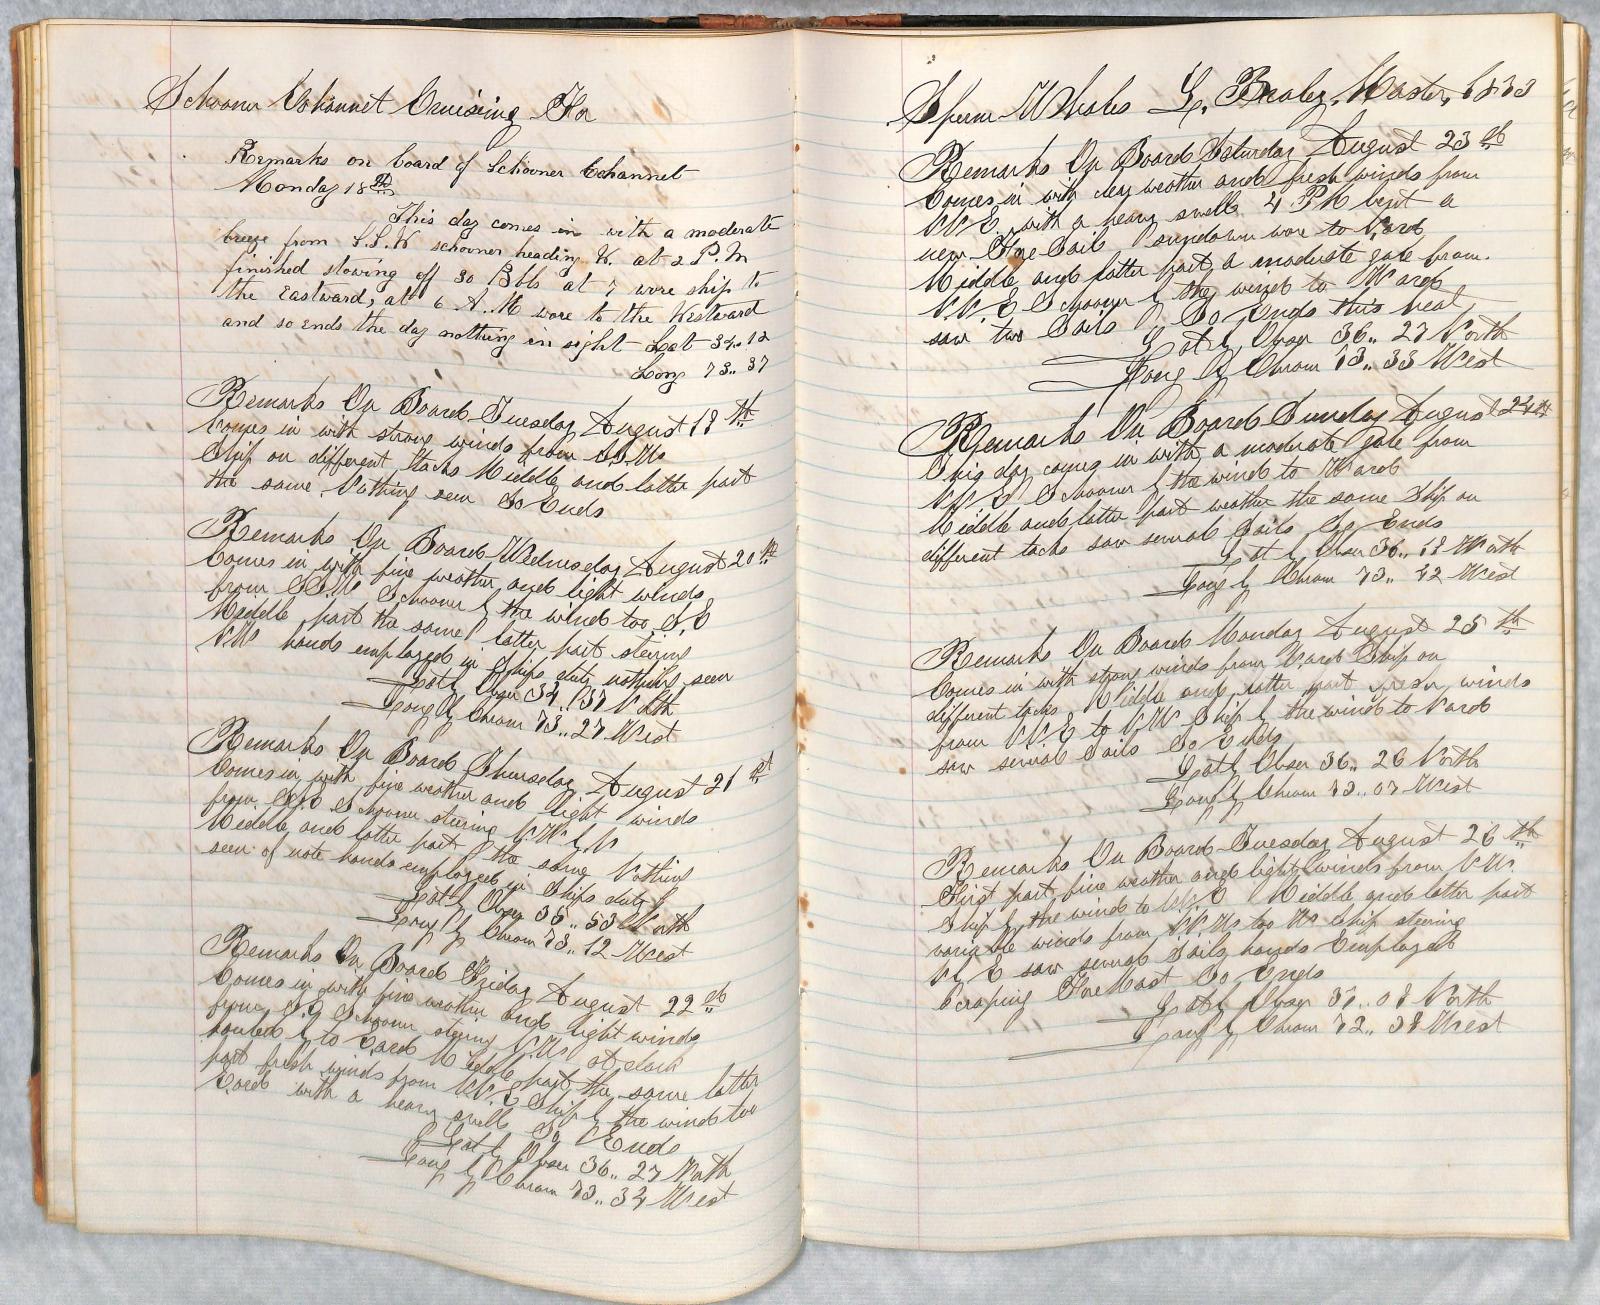 Schooner Cohannet Cruising For
Remarks on board of Schooner Cohannet
Monday 18th
This day comes in with a moderate
breeze from S.S.W schooner heading W. at 2 P.M
finished stowing off 30 Bbls at 7 wore ship to
the Eastward, at 6 A.M wore to the Westward
and so ends the day nothing in sight Lat 34..12
Long 73.. 37
Remarks On Board Tuesday August 19th
Comes in with strong winds from S.S.W
Ship on different Tacks Middle and latter part
the same Nothing seen So Ends
Remarks On Board Wednesday August 20th
Comes in with fine weather and light winds
from S.S.W Schooner by the wind too S.E
Middle part the same latter part stering
N.W hands employed in Ships duty nothing seen
Lat by Obser 34..37 North
Long by Chrom 73..27 West
Remarks On Board Thursday August 21st
Comes in with fine weather and light winds
from Schooner stering N.W by N
Middle and latter part the same Nothing
seen of note hands employed in Ships duty
Lat by Obser 35..53 North
Long by Chrom 73..12 West
Remarks On Board Friday August 22th
Comes in with fine weather and light winds
from S.E Schooner stering N.W at dark
hauled to E.ard Middle part the same latter
part fresh winds from N.N.E Ship by the wind too
E.ard with a heavy swell So Ends
Lat by Obser 36..27 North
Long by Chrom 73..34 West
Sperm Whales Braley, Master,
Remarks On Board Saturday August 23th
Comes in with clear weather and fresh winds from
N.N.E with a heavy swell 4 PM bent a
new Fore Sail sundown wore to N.ard
Middle and latter part a moderate gale from
N.N.E Schooner by the wind to W ard
saw two Sails So Ends this
Lat by Obser 36..27 North
Long by Chrom 73..33 West
Remarks On Board Sunday August 24th
This day comes in with a moderate Gale from
N.N.E Schooner by the wind to W ard
Middle and latter part weather the same Ship on
different tacks saw several Sails So Ends
Lat by Obser 36..19 North
Long by Chrom 73..42 West
Remarks On Board Monday August 25th
Comes in with strong winds from N.ard Ship on
different tacks Middle and latter part fresh winds
from N.N.E to N.W Ship by the wind to N ard
saw several Sails So Ends
Lat by Obser 36..26 North
Long by Chrom 73..07 West
Remarks On Board Tuesday August 26th
First part fine weather and light winds from N.W.
Ship by the wind to N.N.E Middle and latter part
variable winds from N.W too W Ship stering
N.E saw several Sails hands Employed
Scraping Fore Mast So Ends
Lat by Obser 37..08 North
Long by Chrom 72..38 West